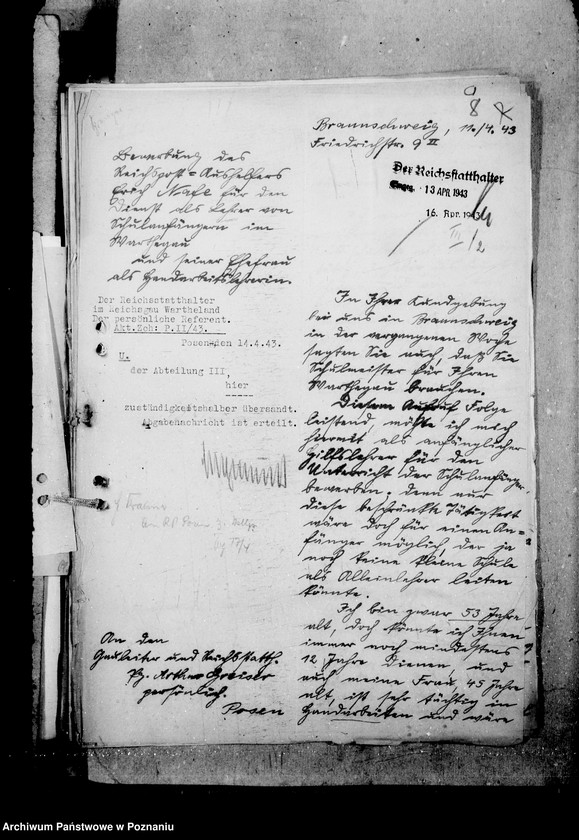 8
Braunschweig, 11./4. 43
Friedrichstr. 9 II
Der Reichsstatthalter
Eingeg. 13 APR 1943
16. Apr. 1943
III/2
Bewerbung des
Reichspost-Aushelfers
Erich Nafe für den
Dienst als Lehrer von
Schulanfängern im
Warthegau
und seiner Ehefrau
als Handarbeitslehrerin.
Der Reichsstatthalter
im Reichsgau Wartheland
Der persönliche Referent.
Akt.Zch: P.II/43.
Posen, den 14.4.43.
U.
der Abteilung III,
hier
-----
zuständigkeitshalber übersandt.
Abgabenachricht ist erteilt.
An den
Gauleiter und Reichsstatth.
Pg. Arthur Greiser
persönlich.
Posen
In Ihrer Kundgebung
bei uns in Braunschweig
in der vergangenen Woche
sagten Sie auch, daß Sie
Schulmeister für Ihren
Warthegau brauchen.
Diesem Aufruf Folge
leistend, möchte ich mich
hiermit als anfänglicher
Hilfslehrer für den
Unterricht der Schulanfänger
bewerben; denn nur
diese beschränkte Tätigkeit
wäre doch für einen An-
fänger möglich, der ja
noch keine kleine Schule
als Alleinlehrer leiten
könnte.
Ich bin zwar 53 Jahre
alt, doch könnte ich Ihnen
immer noch mindestens
12 Jahre dienen, und
auch meine Frau, 45 Jahre
alt, ist sehr tüchtig in
Handarbeiten und wäre
Archiwum Państwowe w Poznaniu